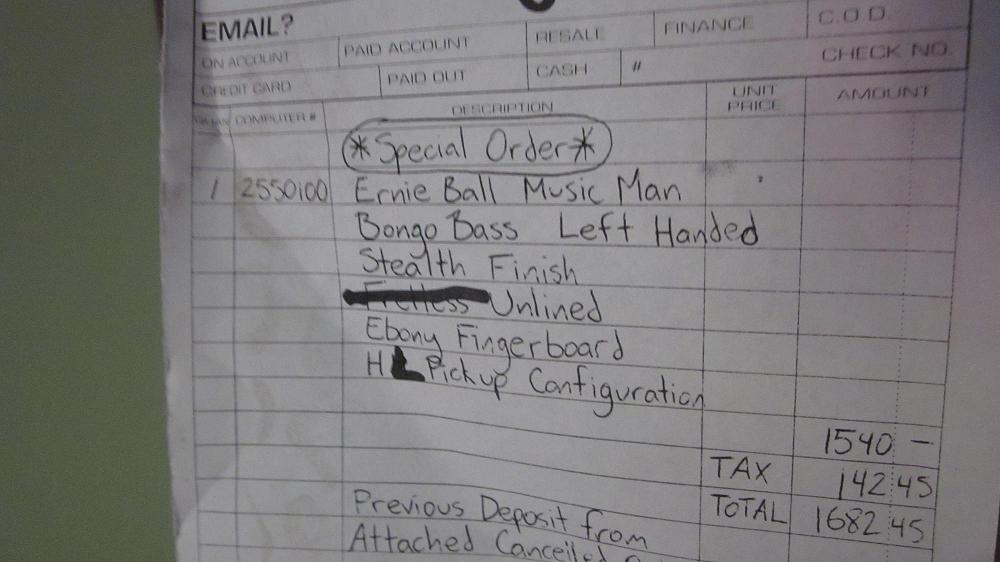 EMAIL?
ON ACCOUNT PAID ACCOUNT RESALE FINANCE C.O.D.
CREDIT CARD PAID OUT CASH # CHECK NO.
COMPUTER # DESCRIPTION UNIT PRICE AMOUNT
*Special Order*
1 2550100 Ernie Ball Music Man
Bongo Bass Left Handed
Stealth Finish
Fretless Unlined
Ebony Fingerboard
H Pickup Configuration
1540 —
TAX 142 45
TOTAL 1682 45
Previous Deposit from
Attached Cancelled